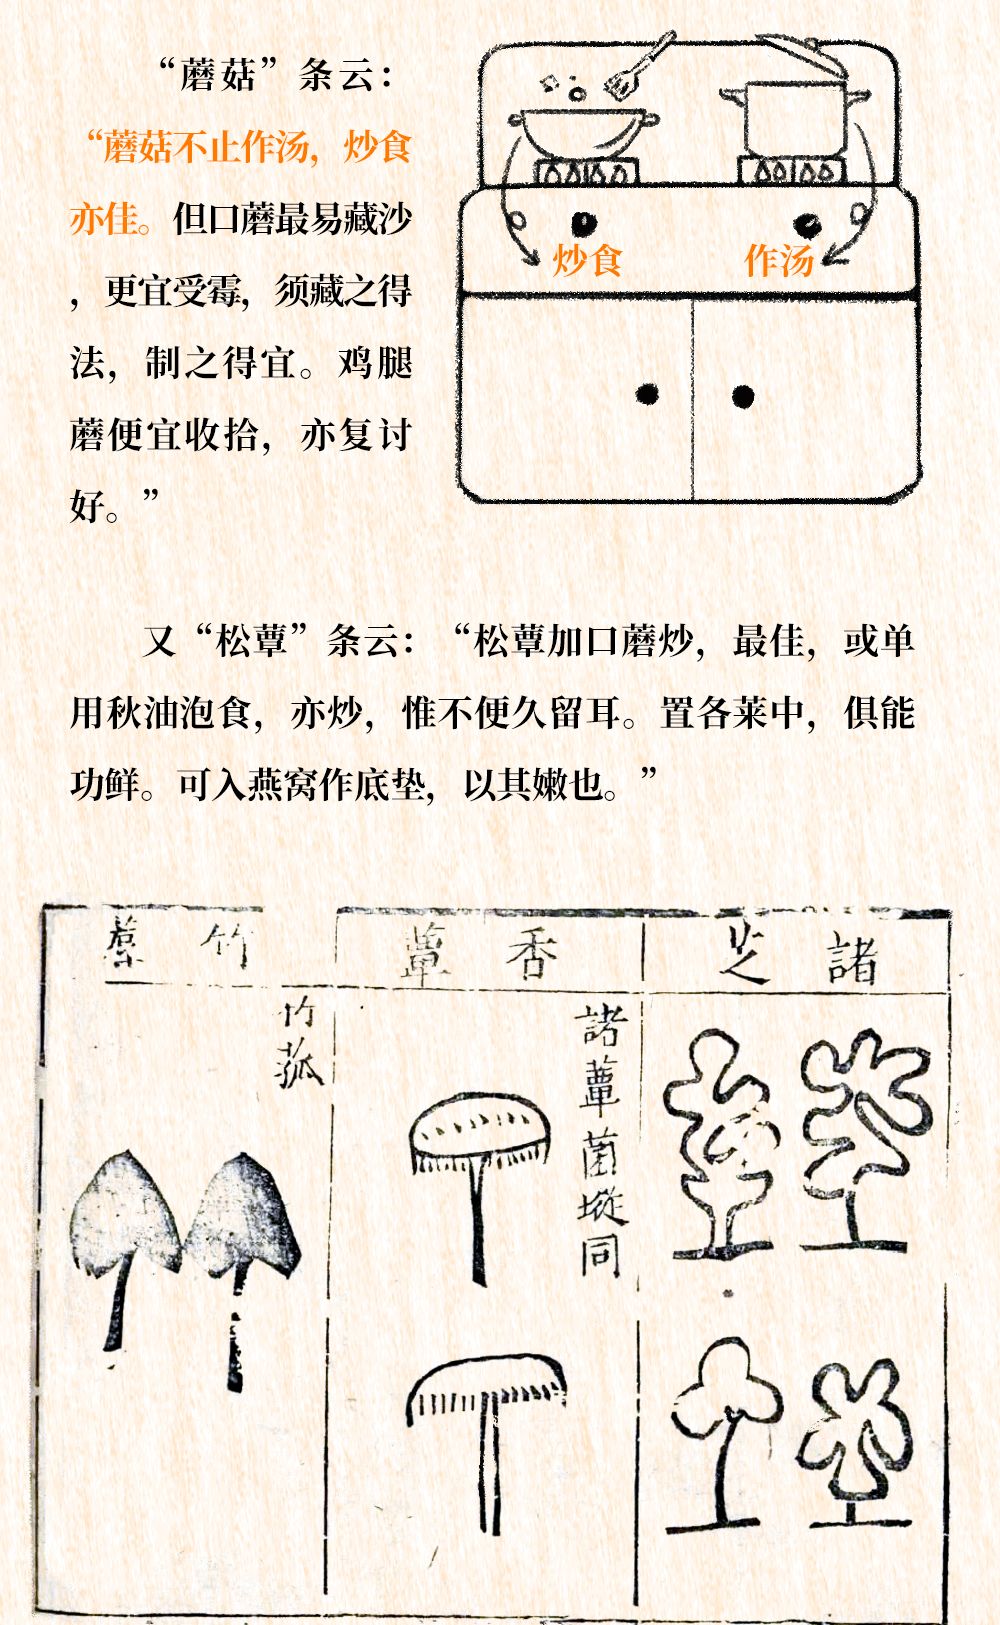 “蘑菇”条云：
“蘑菇不止作汤，炒食
亦佳。但口蘑最易藏沙
，更宜受霉，须藏之得
法，制之得宜。鸡腿
蘑便宜收拾，亦复讨
好。”
炒食
作汤
又“松蕈”条云：“松蕈加口蘑炒，最佳，或单
用秋油泡食，亦炒，惟不便久留耳。置各莱中，俱能
功鲜。可入燕窝作底垫，以其嫩也。”
諸芝
香蕈
諸蕈菌㙡同
竹
竹菰